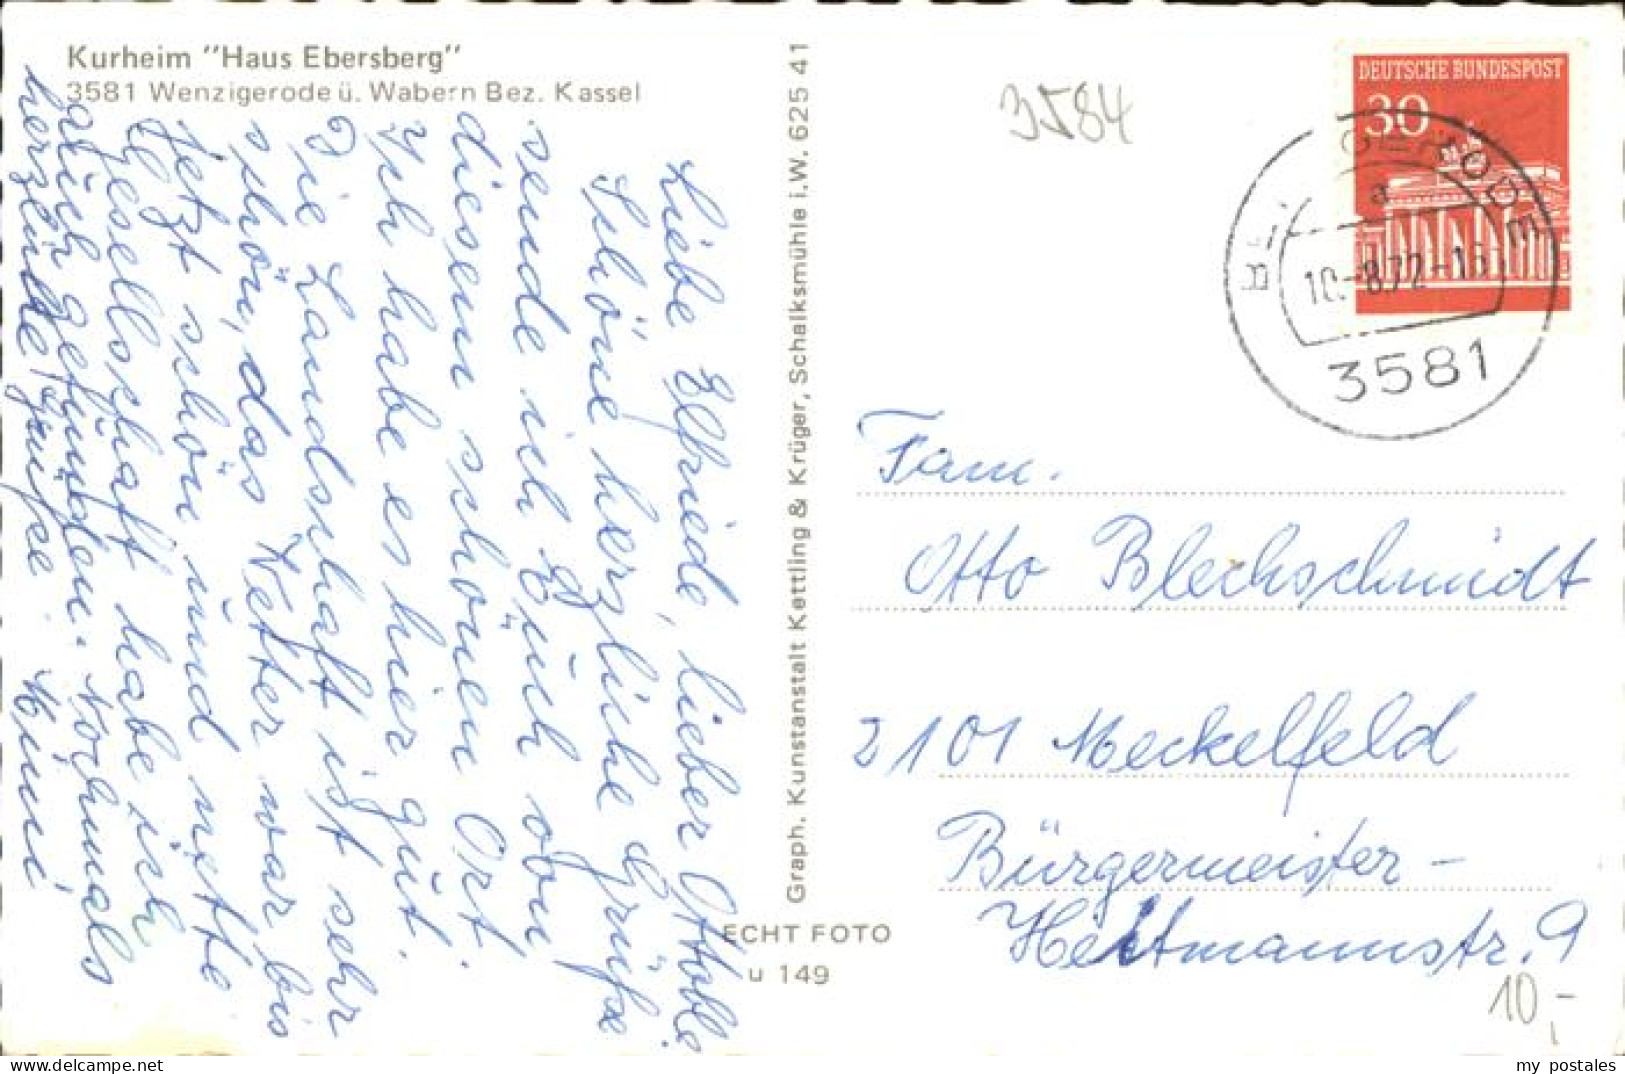 Kurheim "Haus Ebersberg"
3581 Wenzigerode ü. Wabern Bez. Kassel
Liebe Elfriede, lieber Otto
Schöne herzliche Grüße
sende ich Euch von
diesem schönen Ort.
Ich habe es hier gut.
Die Landschaft ist sehr
schön, das Wetter war bis
jetzt schön und nette
Gesellschaft habe ich
auch gefunden. Nochmals
herzliche Grüße
Graph. Kunstanstalt Kettling & Krüger, Schalksmühle i.W. 625 41
ECHT FOTO
u 149
3584
DEUTSCHE BUNDESPOST
30
a
10.-8.72-16
3581
Fam.
Otto Blechschmidt
2101 Meckelfeld
Bürgermeister-
Heitmannstr. 9
10,-
my postales